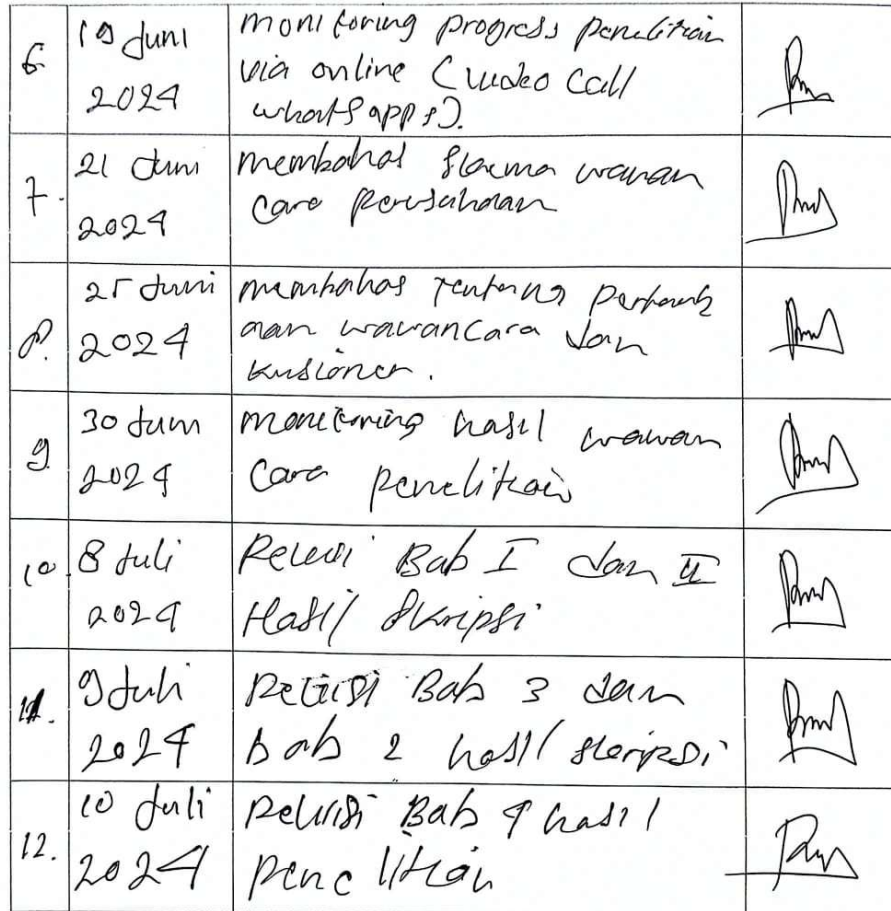 6. 19 Juni 2024 monitoring progress penelitian
via online (video call
whatsapps).
7. 21 Juni 2024 membahas skema wawan
cara perusahaan
8. 25 Juni 2024 membahas tentang pertanny
aan wawancara dan
kusioner.
9. 30 Juni 2024 monitoring hasil wawan
cara penelitian
10. 8 Juli 2024 Revisi Bab I dan II
Hasil skripsi
11. 9 Juli 2024 Revisi Bab 3 dan
bab 2 hasil skripsi
12. 10 Juli 2024 Revisi Bab 4 hasil
penelitian